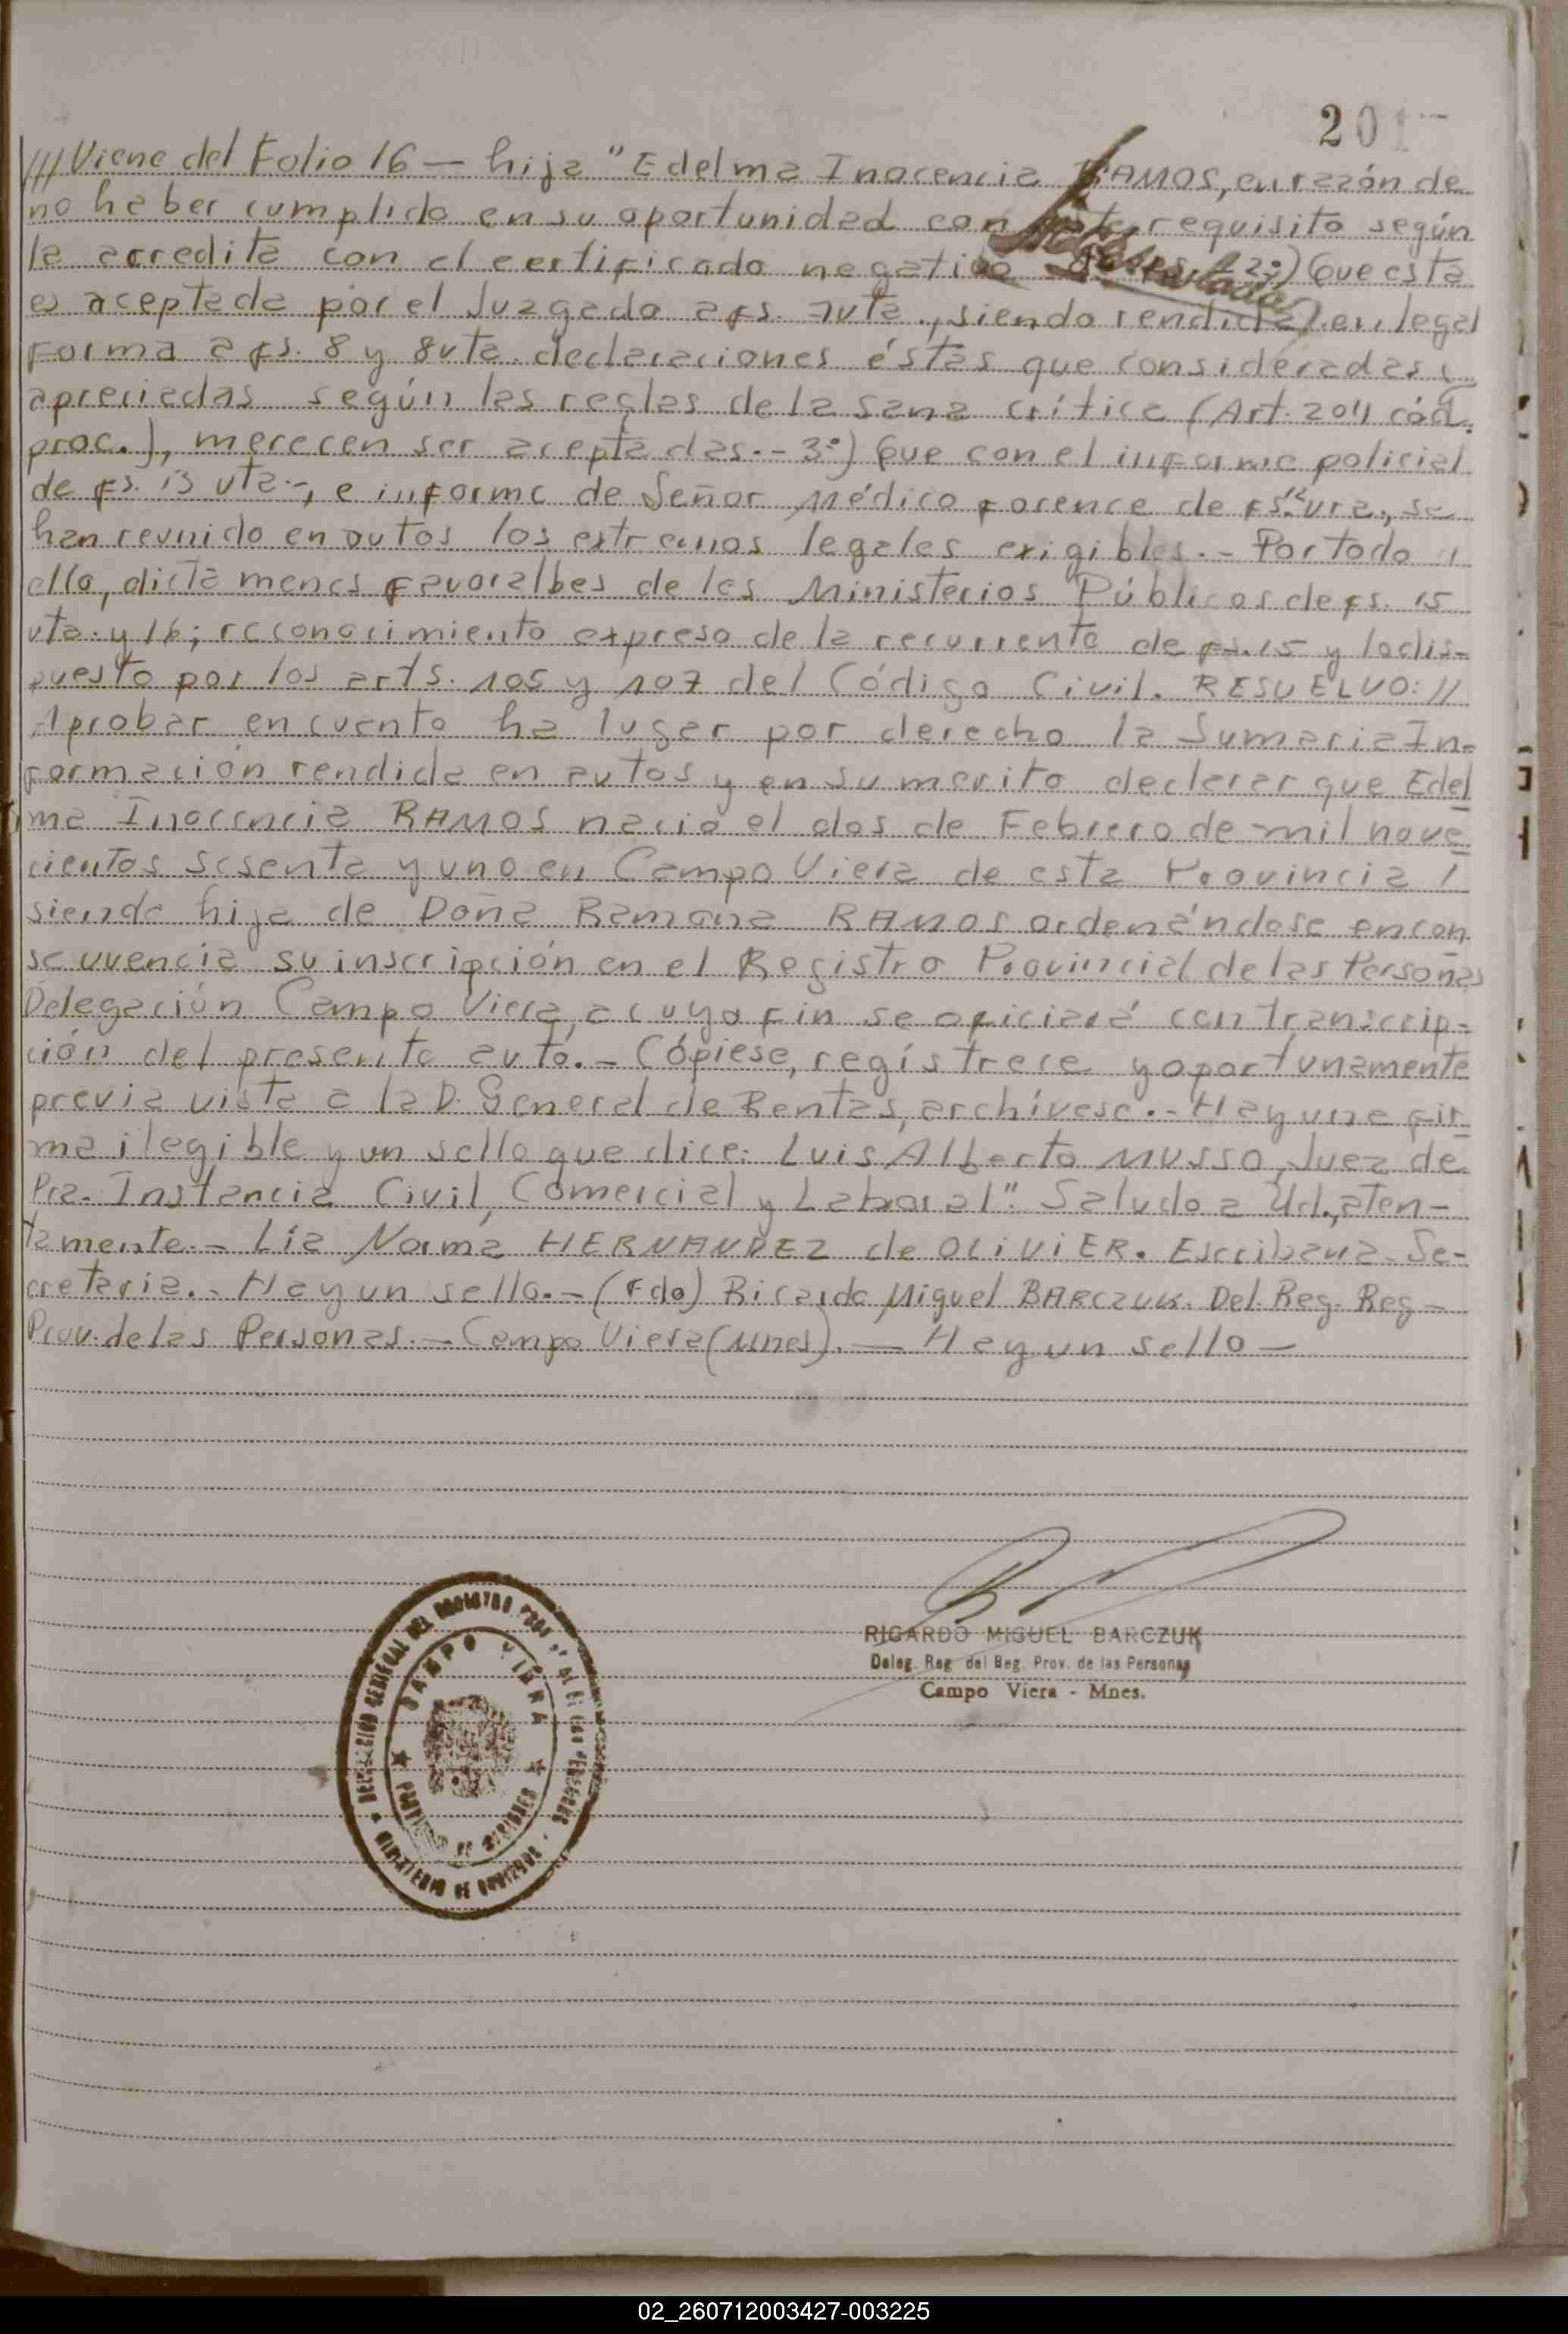 201
/// Viene del Folio 16 — hija "Edelma Inocencia RAMOS, en razón de
no haber cumplido en su oportunidad con este requisito según
la acredita con el certificado negativo 2º) Que esta
es aceptada por el Juzgado a fs. 7vta., siendo rendida, en legal
forma a fs. 8 y 8vta. declaraciones éstas que consideradas y
apreciadas según las reglas de la sana crítica (Art. 204 cód.
proc.), merecen ser aceptadas.- 3º) Que con el informe policial
de fs. 13 vta.-, e informe de Señor Médico forence de fs. vta., se
han reunido en autos los extremos legales exigibles.- Por todo
ello, dictamenes favoralbes de los Ministerios Públicos de fs. 15
vta. y 16; reconocimiento expreso de la recurrente de fs. 15 y lo dis-
puesto por los arts. 105 y 107 del Código Civil. RESUELVO: //
Aprobar en cuanto ha lugar por derecho la Sumaria In-
formación rendida en autos y en su merito declarar que Edel
ma Inocencia RAMOS nació el dos de Febrero de mil nove
cientos sesenta y uno en Campo Viera de esta Provincia /
siendo hija de Doña Ramona RAMOS ordenándose en con
secuvencia su inscripción en el Registro Provincial de las Personas
Delegación Campo Viera, a cuyo fin se oficiará con transcrip-
ción del presente auto.- Cópiese, regístrece y oportunamente
previa vista a la D. General de Rentas, archívese.- Hay una fir
ma ilegible y un sello que dice: Luis Alberto MUSSO, Juez de
Pra. Instancia Civil, Comercial y Laboral". Saludo a Ud., aten-
tamente.- Lia Norma HERNANDEZ de OLIVIER. Escribana Se-
cretaria.- Hay un sello.- (Fdo) Ricardo Miguel BARCZUK. Del. Reg. Reg-
Prov. de las Personas.- Campo Viera (Mnes).- Hay un sello —
RICARDO MIGUEL BARCZUK
Deleg. Reg del Reg. Prov. de las Personas
Campo Viera - Mnes.
CAMPO VIERA
02_260712003427-003225